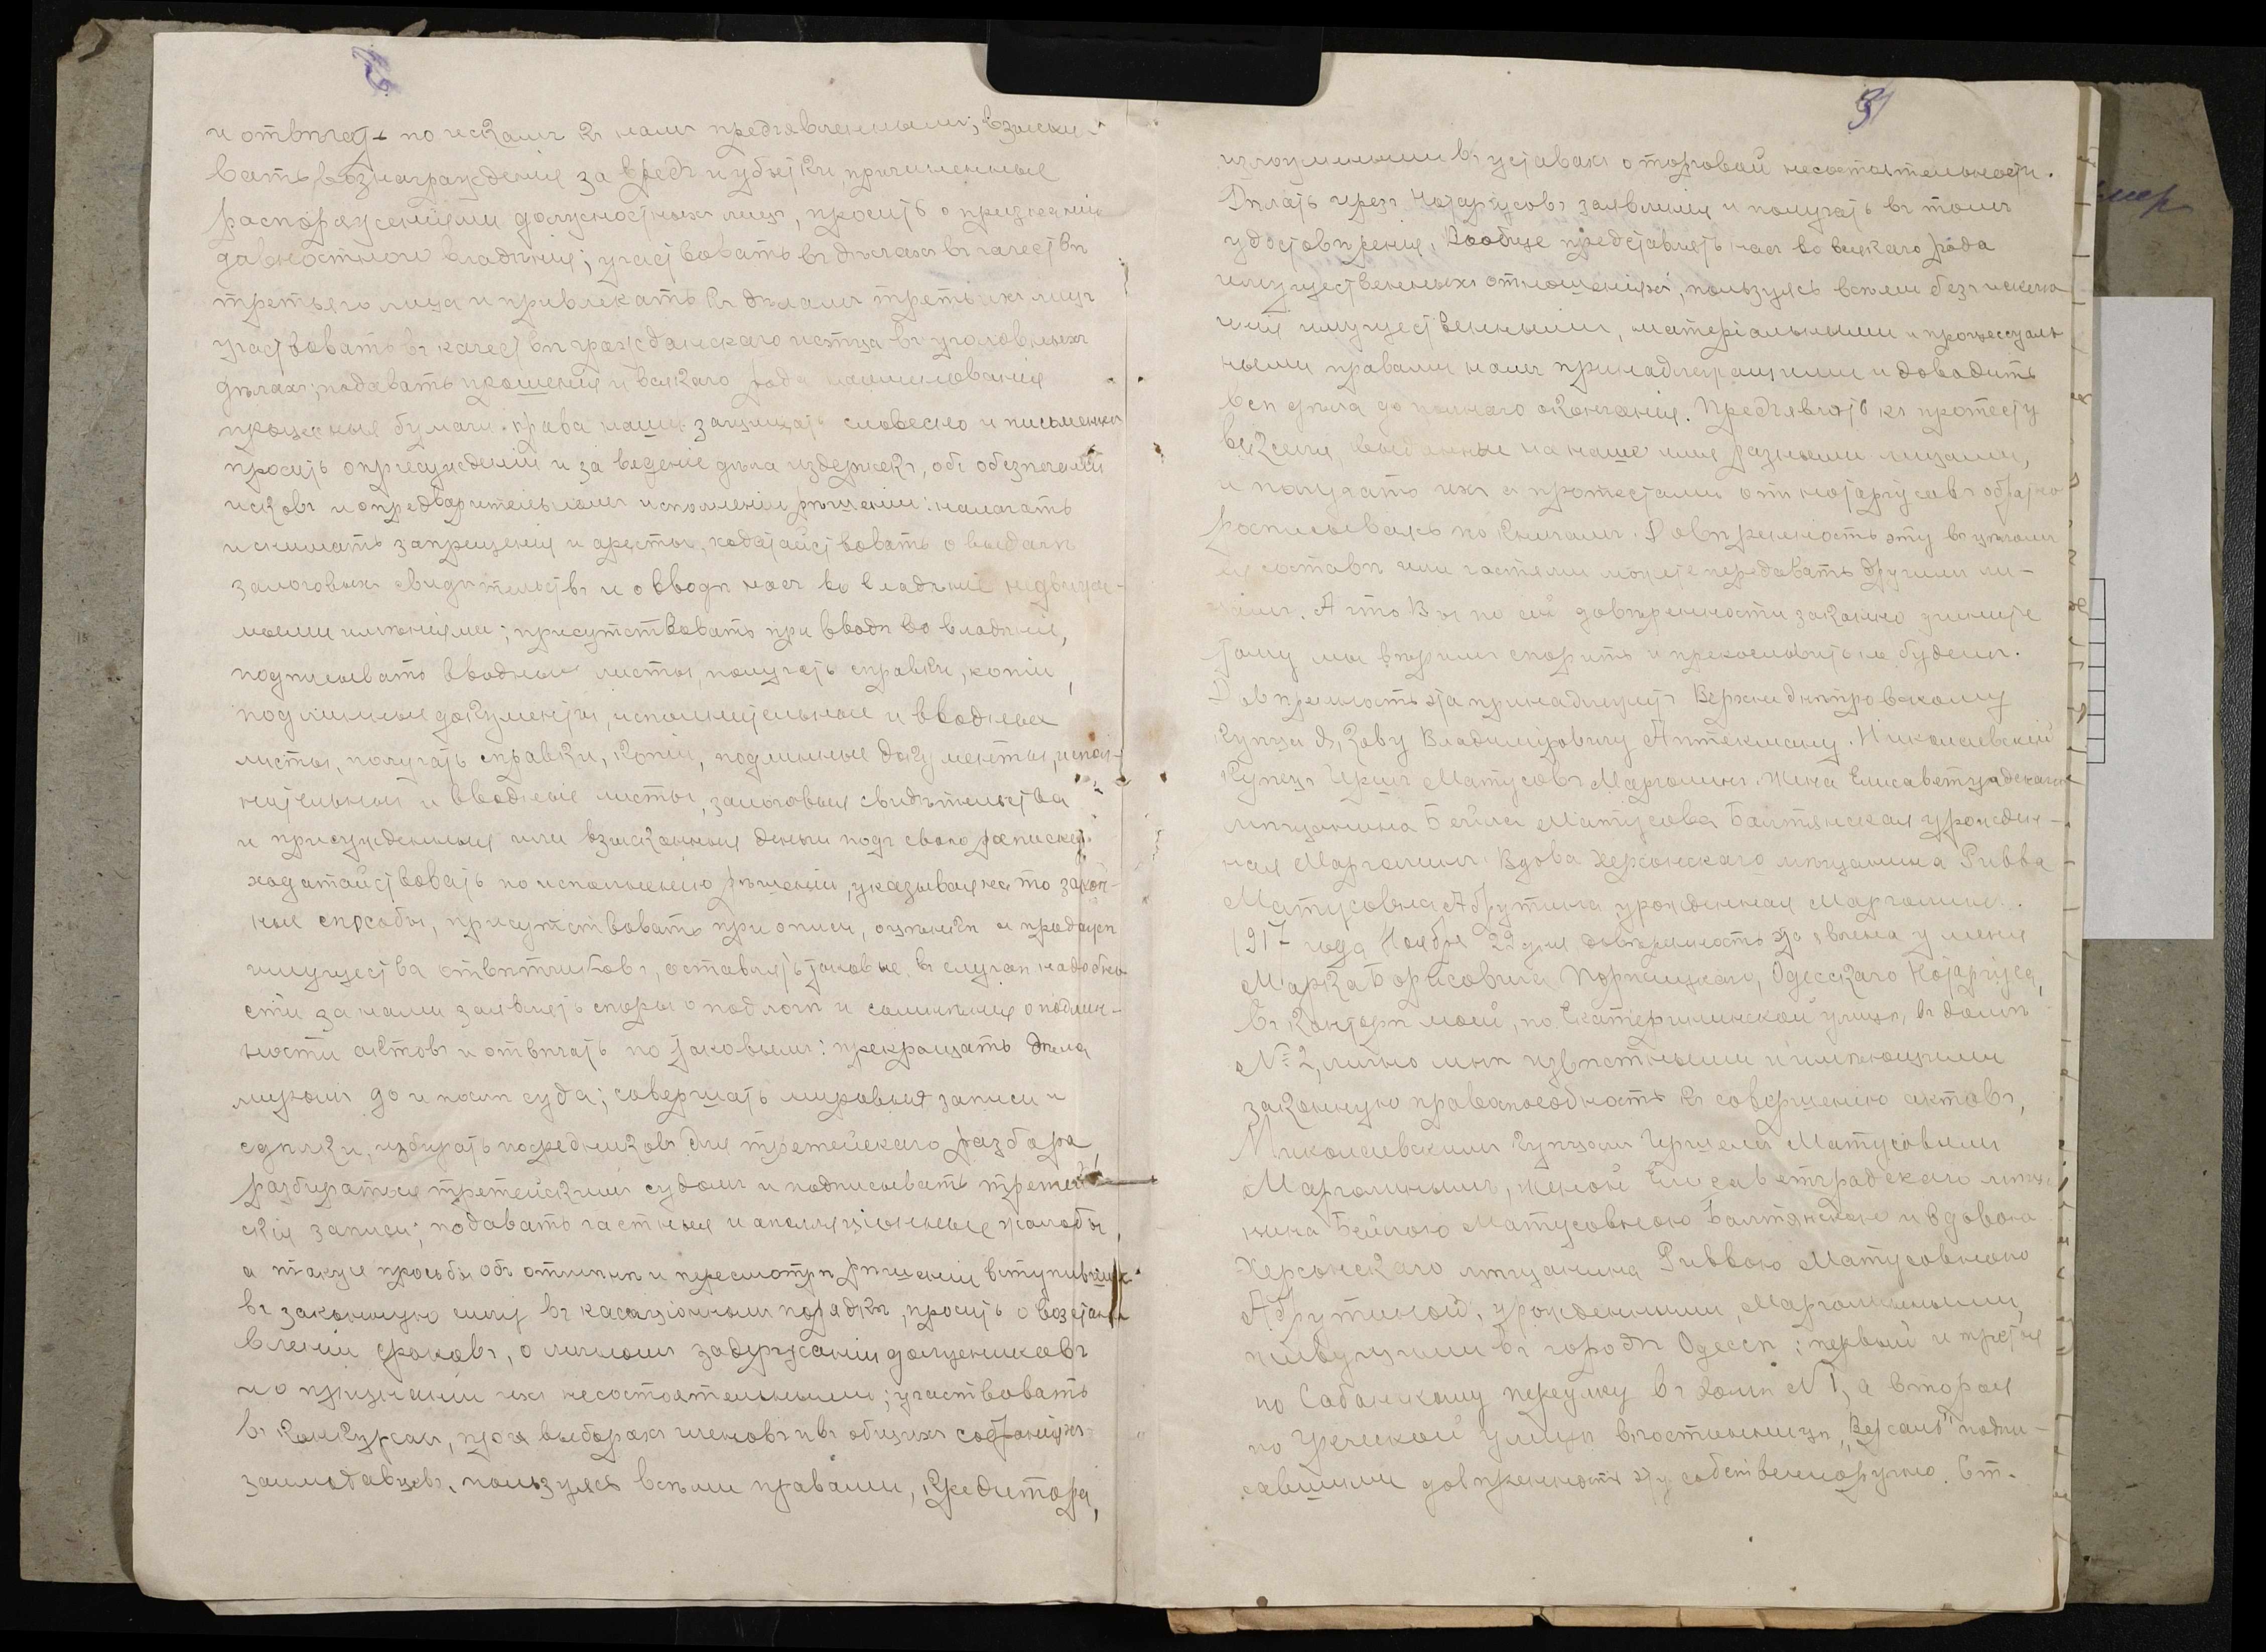 и отвѣчать по искамъ къ намъ предъявленнымъ; взыски-
вать вознагражденія за вредъ и убытки, причиненные
распоряженіями должностныхъ лицъ, просить о признаніи
давностнаго владѣнія; участвовать въ дѣлахъ въ качествѣ
третьяго лица и привлекать къ дѣламъ третьихъ лицъ
участвовать въ качествѣ гражданскаго истца въ уголовныхъ
дѣлахъ; подавать прошенія и всякаго рода наименованія
процесныя бумаги. права наши защищать словесно и письменно
просить о присужденіи и за веденіе дѣла издержекъ, объ обезпеченіи
исковъ и о предварительномъ исполненіи рѣшеній: налагать
и снимать запрещенія и аресты, ходатайствовать о выдачѣ
залоговыхъ свидѣтельствъ и о вводѣ насъ во владѣніе недвижи-
мыми имѣніями; присутствовать при вводѣ во владѣніе,
подписывать вводные листы, получать справки, копіи,
подлинные документы, исполнительные и вводные
листы, получать справки, копіи, подлинные документы, испол-
нительные и вводные листы, залоговыя свидѣтельства
и присужденныя или взысканныя деньги подъ свою расписку.
ходатайствовать по исполненію рѣшеній, указывая на то закон-
ные способы, присутствовать при описи, оцѣнкѣ и продажѣ
имущества отвѣтчиковъ, оставлять таковые въ случаѣ надобно-
сти за нами заявлять споры о подлогѣ и сомнѣнія о подлин-
ности актовъ и отвѣчать по таковымъ: прекращать дѣла
миромъ до и послѣ суда; совершать мировыя записи и
сдѣлки, избирать посредниковъ для третейскаго разбора
разбираться третейскимъ судомъ и подписывать третей-
скія записи; подавать частныя и апелляціонные жалобы,
а также просьбы объ отмѣнѣ и пересмотрѣ рѣшеній вступившихъ
въ законную силу въ касаціонномъ порядкѣ, просить о возстано-
вленіи сроковъ, о личномъ задержаніи должниковъ
и о признаніи ихъ несостоятельными; участвовать
въ конкурсахъ, при выборахъ членовъ и въ общихъ собраніяхъ
заимодавцевъ, пользуясь всѣми правами, кредитора,
31
изложенными въ уставахъ о торговой несостоятельности.
Дѣлать чрезъ Нотаріусовъ заявленія и получать въ томъ
удостовѣренія, Вообще представлять насъ во всякаго рода
имущественныхъ отношеніяхъ, пользуясь всѣми безъ исключе-
нія имущественными, матеріальными и процессуаль-
ными правами намъ принадлежащими и доводить
всѣ дѣла до полнаго окончанія. Предъявлять къ протесту
векселя, выданные на наше имя разными лицами,
и получать ихъ съ протестами отъ нотаріусовъ обратно
росписываясь по книгамъ. Довѣренность эту въ цѣломъ
ея составѣ или частями можете передавать другимъ ли-
цамъ. А что Вы по сей довѣренности законно учините
тому мы вѣримъ спорить и прекословить не будемъ.
Довѣренность эта принадлежитъ Верхнеднѣпровскому
купцу Якову Владиміровичу Аптекману. Николаевскій
Купецъ Гершъ Матусовъ Марголинъ. Жена Елисаветградскаго
мѣщанина Бейла Матусова Балтянская урожден-
ная Марголинъ. Вдова херсонскаго мѣщанина Ривва
Матусовна Абрутина урожденная Марголинъ.
1917 года Ноября 29 дня довѣренность эта явлена у меня
Марка Борисовича Порѣцкаго, Одесскаго Нотаріуса,
въ конторѣ моей, по Екатерининской улицѣ, въ домѣ
№ 2, лично мнѣ извѣстными и имѣющими
законную правоспособность къ совершенію актовъ,
Николаевскимъ купцомъ Гершемъ Матусовымъ
Марголинымъ, женой Елисаветградскаго мѣща-
нина Бейлою Матусовною Балтянскою и вдовою
Херсонскаго мѣщанина Риввою Матусовною
Абрутиной, урожденными Марголиными,
живущими въ городѣ Одессѣ: первый и третья
по Сабанскому переулку въ домѣ № 1, а вторая
по Греческой улицѣ въ гостинницѣ „Версаль" подпи-
савшими довѣренность эту собственноручно. Ст.